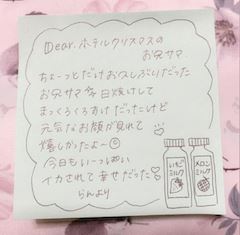 Dear. ホテルクリスマスの
お兄サマ
ちょーっとだけお久しぶりだった
お兄サマ 日焼けして
まっくろくろすけだったけど
元気なお顔が見れて
嬉しかったよ〜☺
今日もいーっぱい
イカされて幸せだった♡
らんより
いちご
ミルク
メロン
ミルク